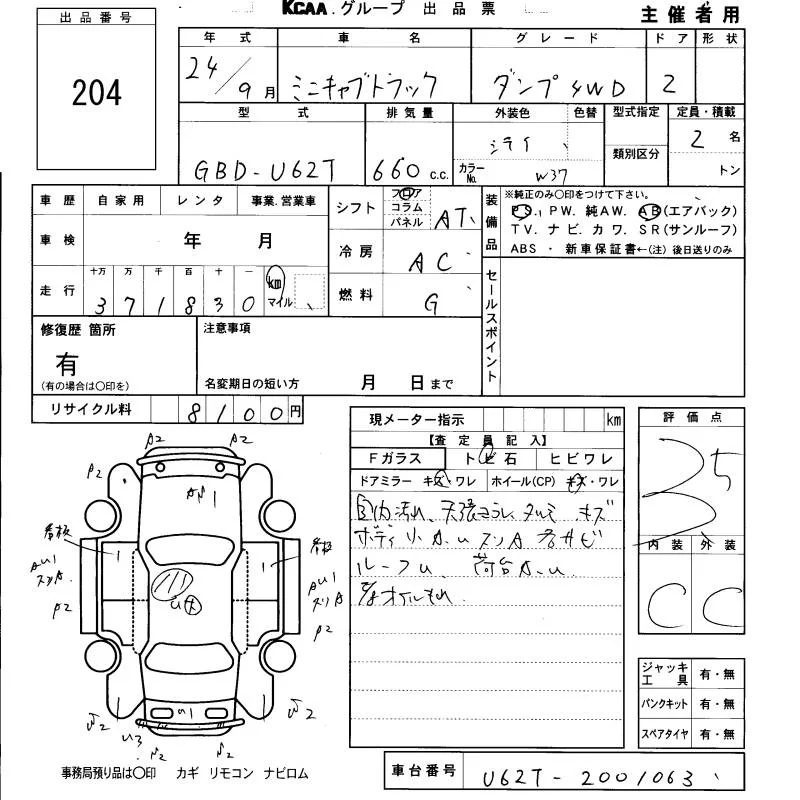 KCAA.グループ 出品票
主催者用
出品番号
204
年式 車名 グレード ドア 形状
24/9月 ミニキャブトラック ダンプ4WD 2
型式 排気量 外装色 色替 型式指定 定員・積載
GBD-U62T 660 c.c. カラーNo. W37 類別区分 2名
トン
車歴 自家用 レンタ 事業.営業車
車検 年 月
走行 十万 万 千 百 十 一 km マイル
371830
シフト フロア コラム パネル AT
冷房 AC
燃料 G
装備品
※純正のみ〇印をつけて下さい。
PS., PW. 純AW. AB(エアバック)
TV. ナビ. カワ. SR(サンルーフ)
ABS ・ 新車保証書←(注) 後日送りのみ
セールスポイント
修復歴 箇所
有
(有の場合は〇印を)
注意事項
名変期日の短い方 月 日まで
リサイクル料 8100円
現メーター指示 km
【査定員記入】
Fガラス トビ石 ヒビワレ
ドアミラー キズ・ワレ ホイール(CP) キズ・ワレ
ルーフU 荷台A.U
評価点
3.5
内装 外装
C C
A2 A2
P2
A1
看板 看板
1 1
AU1 AU1
スリA スリA
P2 P2
U大
W2 W2
U1
U3
ジャッキ工具 有・無
パンクキット 有・無
スペアタイヤ 有・無
事務局預り品は〇印 カギ リモコン ナビロム
車台番号 U62T-2001063